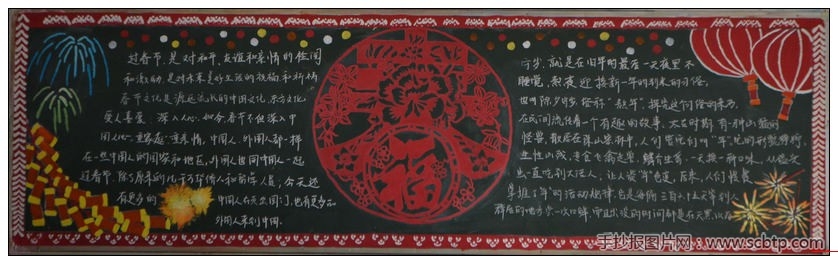 过春节,是对和平、友谊和亲情的
和激励,是对未来美好生活的祝福和祈祷
春节文化是源远流长的中国文化,东方文化
受人喜爱 深入人心,如今,春节不但深入中
国人心 重家庭、重亲情,中国人、外国人都一样
在一些中国人的国家和地区,外国人也同中国人一起
过春节,除了原来的几千万华侨人和华裔人员,今天还
有更多的 中国人在天出国门,也有更多的
外国人来到中国.
春
福
守岁,就是在旧年的最后一天夜里不
睡觉,熬夜迎接新一年的到来的习俗,
也叫除夕守岁,俗称"熬年"探究这个习俗的来历,
在民间流传着一个有趣的故事,太古时期,有一种凶猛的
怪兽,散居在深山密林中,人们管它们叫"年",它的形貌狰狞,
生性凶残,专食飞禽走兽、鳞介虫豸,一天换一种口味,从磕头
虫一直吃到大活人,让人谈"年"色变,后来,人们慢慢
掌握了"年"的活动规律,它是每隔三百六十五天窜到人
群居的地方尝一次口鲜,而且出没的时间都是在天黑以后
手抄报图片网:www.scbtp.com